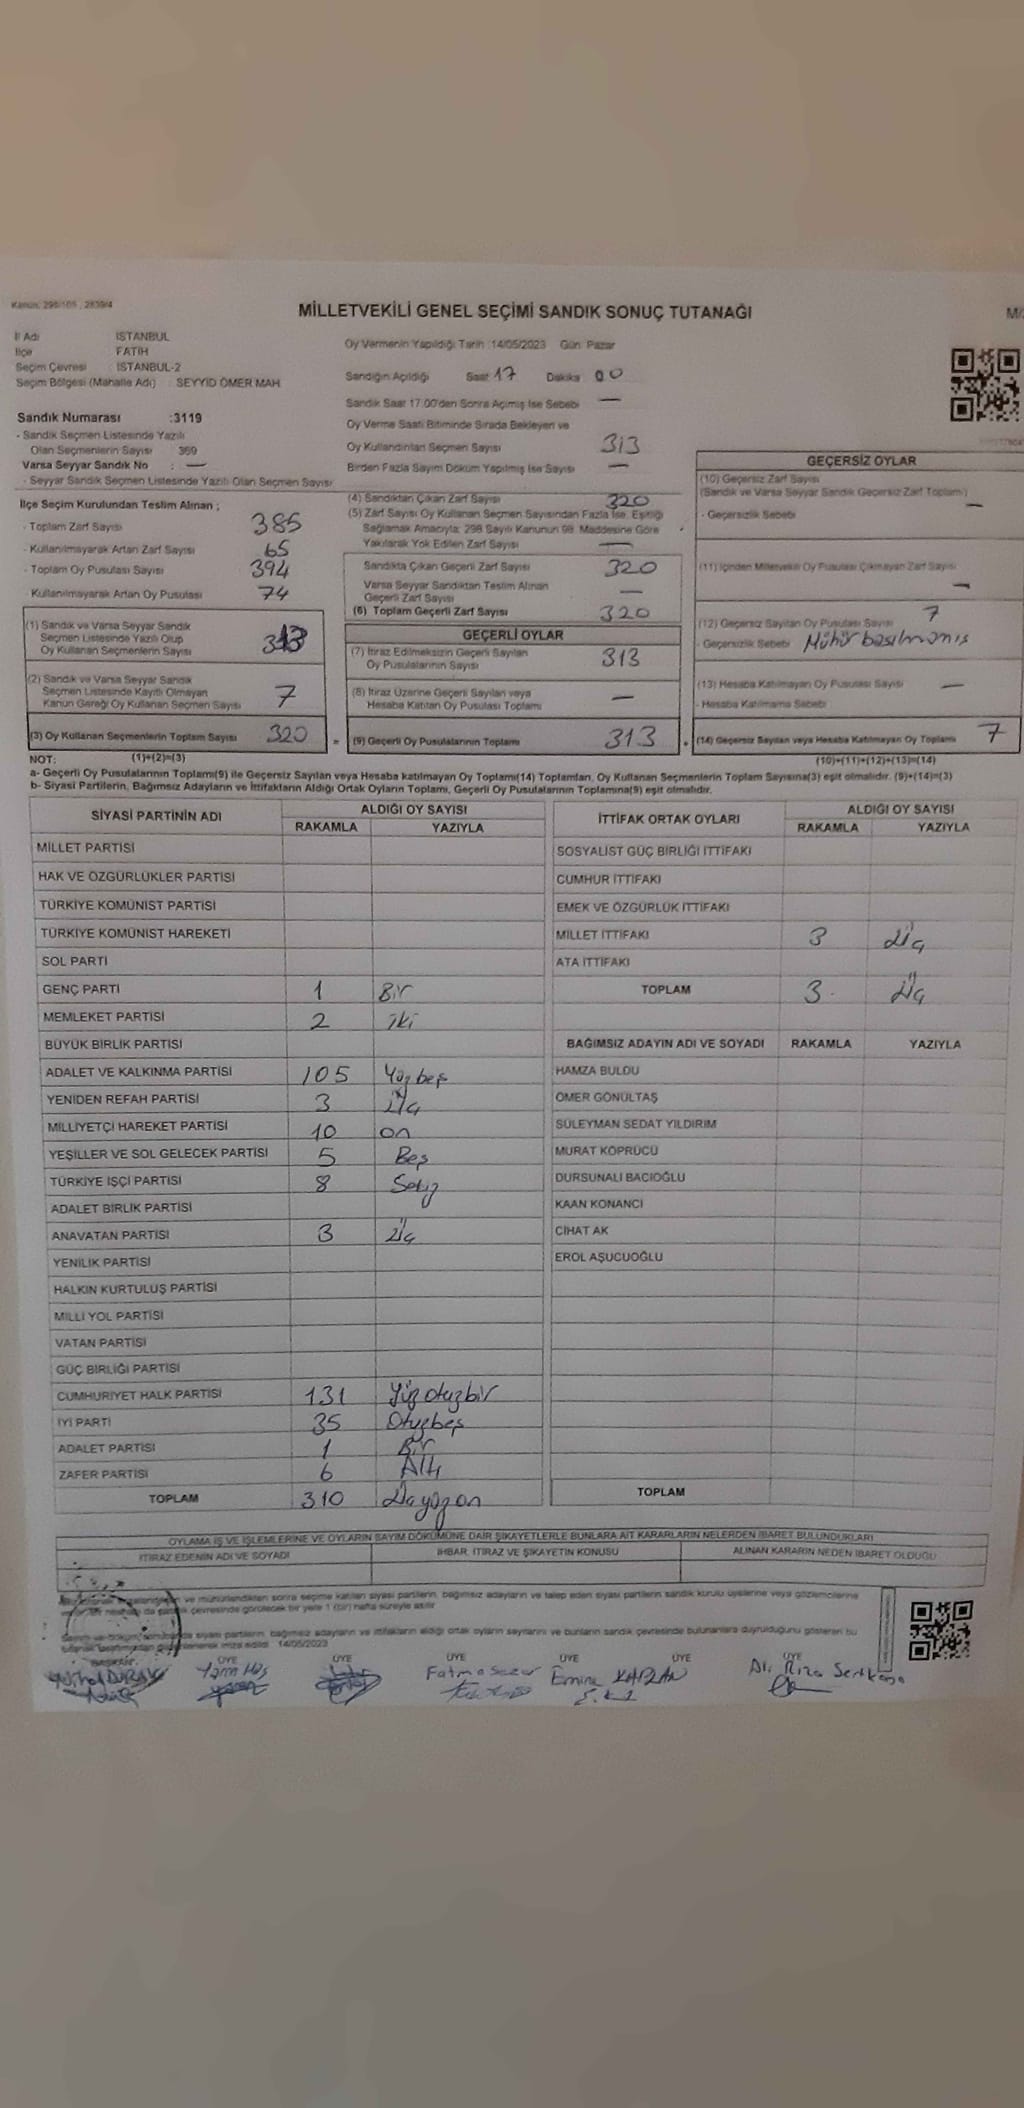 Kanun: 298/105 , 2839/4
MİLLETVEKİLİ GENEL SEÇİMİ SANDIK SONUÇ TUTANAĞI
İl Adı İSTANBUL
İlçe FATİH
Seçim Çevresi İSTANBUL-2
Seçim Bölgesi (Mahalle Adı) : SEYYİD ÖMER MAH
Sandık Numarası :3119
- Sandık Seçmen Listesinde Yazılı
Olan Seçmenlerin Sayısı 369
Varsa Seyyar Sandık No : —
- Seyyar Sandık Seçmen Listesinde Yazılı Olan Seçmen Sayısı
Oy Vermenin Yapıldığı Tarih :14/05/2023 Gün: Pazar
Sandığın Açıldığı Saat 17 Dakika 00
Sandık Saat 17:00'den Sonra Açılmış İse Sebebi —
Oy Verme Saati Bitiminde Sırada Bekleyen ve
Oy Kullandırılan Seçmen Sayısı 313
Birden Fazla Sayım Döküm Yapılmış İse Sayısı —
İlçe Seçim Kurulundan Teslim Alınan ;
- Toplam Zarf Sayısı 385
- Kullanılmayarak Artan Zarf Sayısı 65
- Toplam Oy Pusulası Sayısı 394
- Kullanılmayarak Artan Oy Pusulası 74
(1) Sandık ve Varsa Seyyar Sandık
Seçmen Listesinde Yazılı Olup
Oy Kullanan Seçmenlerin Sayısı 313
(2) Sandık ve Varsa Seyyar Sandık
Seçmen Listesinde Kayıtlı Olmayan
Kanun Gereği Oy Kullanan Seçmen Sayısı 7
(3) Oy Kullanan Seçmenlerin Toplam Sayısı 320
(4) Sandıktan Çıkan Zarf Sayısı 320
(5) Zarf Sayısı Oy Kullanan Seçmen Sayısından Fazla İse, Eşitliği
Sağlamak Amacıyla; 298 Sayılı Kanunun 98. Maddesine Göre
Yakılarak Yok Edilen Zarf Sayısı —
Sandıkta Çıkan Geçerli Zarf Sayısı 320
Varsa Seyyar Sandıktan Teslim Alınan
Geçerli Zarf Sayısı —
(6) Toplam Geçerli Zarf Sayısı 320
GEÇERLİ OYLAR
(7) İtiraz Edilmeksizin Geçerli Sayılan
Oy Pusulalarının Sayısı 313
(8) İtiraz Üzerine Geçerli Sayılan veya
Hesaba Katılan Oy Pusulası Toplamı —
= (9) Geçerli Oy Pusulalarının Toplamı 313
GEÇERSİZ OYLAR
(10) Geçersiz Zarf Sayısı
(Sandık ve Varsa Seyyar Sandık Geçersiz Zarf Toplamı) —
- Geçersizlik Sebebi
(11) İçinden Milletvekili Oy Pusulası Çıkmayan Zarf Sayısı
—
(12) Geçersiz Sayılan Oy Pusulası Sayısı 7
- Geçersizlik Sebebi Mühür basılmamış
(13) Hesaba Katılmayan Oy Pusulası Sayısı —
- Hesaba Katılmama Sebebi
+ (14) Geçersiz Sayılan veya Hesaba Katılmayan Oy Toplamı 7
NOT: (1)+(2)=(3) (10)+(11)+(12)+(13)=(14)
a- Geçerli Oy Pusulalarının Toplamı(9) ile Geçersiz Sayılan veya Hesaba katılmayan Oy Toplamı(14) Toplamları, Oy Kullanan Seçmenlerin Toplam Sayısına(3) eşit olmalıdır. (9)+(14)=(3)
b- Siyasi Partilerin, Bağımsız Adayların ve İttifakların Aldığı Ortak Oyların Toplamı, Geçerli Oy Pusulalarının Toplamına(9) eşit olmalıdır.
SİYASİ PARTİNİN ADI ALDIĞI OY SAYISI
RAKAMLA YAZIYLA
MİLLET PARTİSİ
HAK VE ÖZGÜRLÜKLER PARTİSİ
TÜRKİYE KOMÜNİST PARTİSİ
TÜRKİYE KOMÜNİST HAREKETİ
SOL PARTİ
GENÇ PARTİ 1 Bir
MEMLEKET PARTİSİ 2 iki
BÜYÜK BİRLİK PARTİSİ
ADALET VE KALKINMA PARTİSİ 105 Yüzbeş
YENİDEN REFAH PARTİSİ 3 üç
MİLLİYETÇİ HAREKET PARTİSİ 10 on
YEŞİLLER VE SOL GELECEK PARTİSİ 5 Beş
TÜRKİYE İŞÇİ PARTİSİ 8 Sekiz
ADALET BİRLİK PARTİSİ
ANAVATAN PARTİSİ 3 üç
YENİLİK PARTİSİ
HALKIN KURTULUŞ PARTİSİ
MİLLİ YOL PARTİSİ
VATAN PARTİSİ
GÜÇ BİRLİĞİ PARTİSİ
CUMHURİYET HALK PARTİSİ 131 Yüzotuzbir
İYİ PARTİ 35 Otuzbeş
ADALET PARTİSİ 1 Bir
ZAFER PARTİSİ 6 Altı
TOPLAM 310 Üçyüzon
İTTİFAK ORTAK OYLARI ALDIĞI OY SAYISI
RAKAMLA YAZIYLA
SOSYALİST GÜÇ BİRLİĞİ İTTİFAKI
CUMHUR İTTİFAKI
EMEK VE ÖZGÜRLÜK İTTİFAKI
MİLLET İTTİFAKI 3 üç
ATA İTTİFAKI
TOPLAM 3 üç
BAĞIMSIZ ADAYIN ADI VE SOYADI RAKAMLA YAZIYLA
HAMZA BULDU
ÖMER GÖNÜLTAŞ
SÜLEYMAN SEDAT YILDIRIM
MURAT KÖPRÜCÜ
DURSUNALİ BACIOĞLU
KAAN KONANCI
CİHAT AK
EROL AŞUCUOĞLU
TOPLAM
OYLAMA İŞ VE İŞLEMLERİNE VE OYLARIN SAYIM DÖKÜMÜNE DAİR ŞİKAYETLERLE BUNLARA AİT KARARLARIN NELERDEN İBARET BULUNDUKLARI
İTİRAZ EDENİN ADI VE SOYADI İHBAR, İTİRAZ VE ŞİKAYETİN KONUSU ALINAN KARARIN NEDEN İBARET OLDUĞU
ve mühürlendikten sonra seçime katılan siyasi partilerin, bağımsız adayların ve talep eden siyasi partilerin sandık kurulu üyelerine veya gözlemcilerine
da sandık çevresinde görülecek bir yere 1 (bir) hafta süreyle asılır
siyasi partilerin, bağımsız adayların ve ittifakların aldığı ortak oyların sayılarını ve bunların sandık çevresinde bulunanlara duyrulduğunu gösteren bu
imza edildi. 14/05/2023
BAŞKAN ÜYE ÜYE ÜYE ÜYE ÜYE ÜYE
Fatma Sezer Emine KAPLAN Ali Rıza Sertkaya